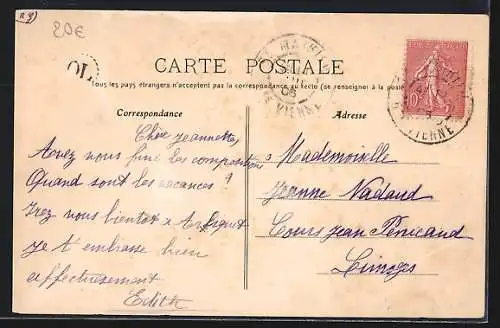 20€
OL
CARTE POSTALE
Tous les pays étrangers n'acceptent pas la correspondance au recto (se renseigner à la poste)
Correspondance
Adresse
Chère Jeannette
Avez vous fini les compositions
Quand sont les vacances ?
Irez vous bientôt x
Je t'embrasse bien
affectueusement
Edith
Mademoiselle
Jeanne Nadaud
Cours Jean Pénicaud
Limoges
10
VIENNE
VIENNE